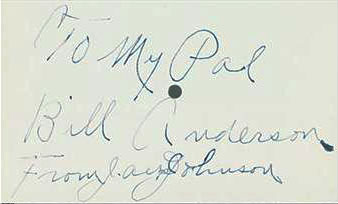 To My Pal
Bill Anderson
From Johnson